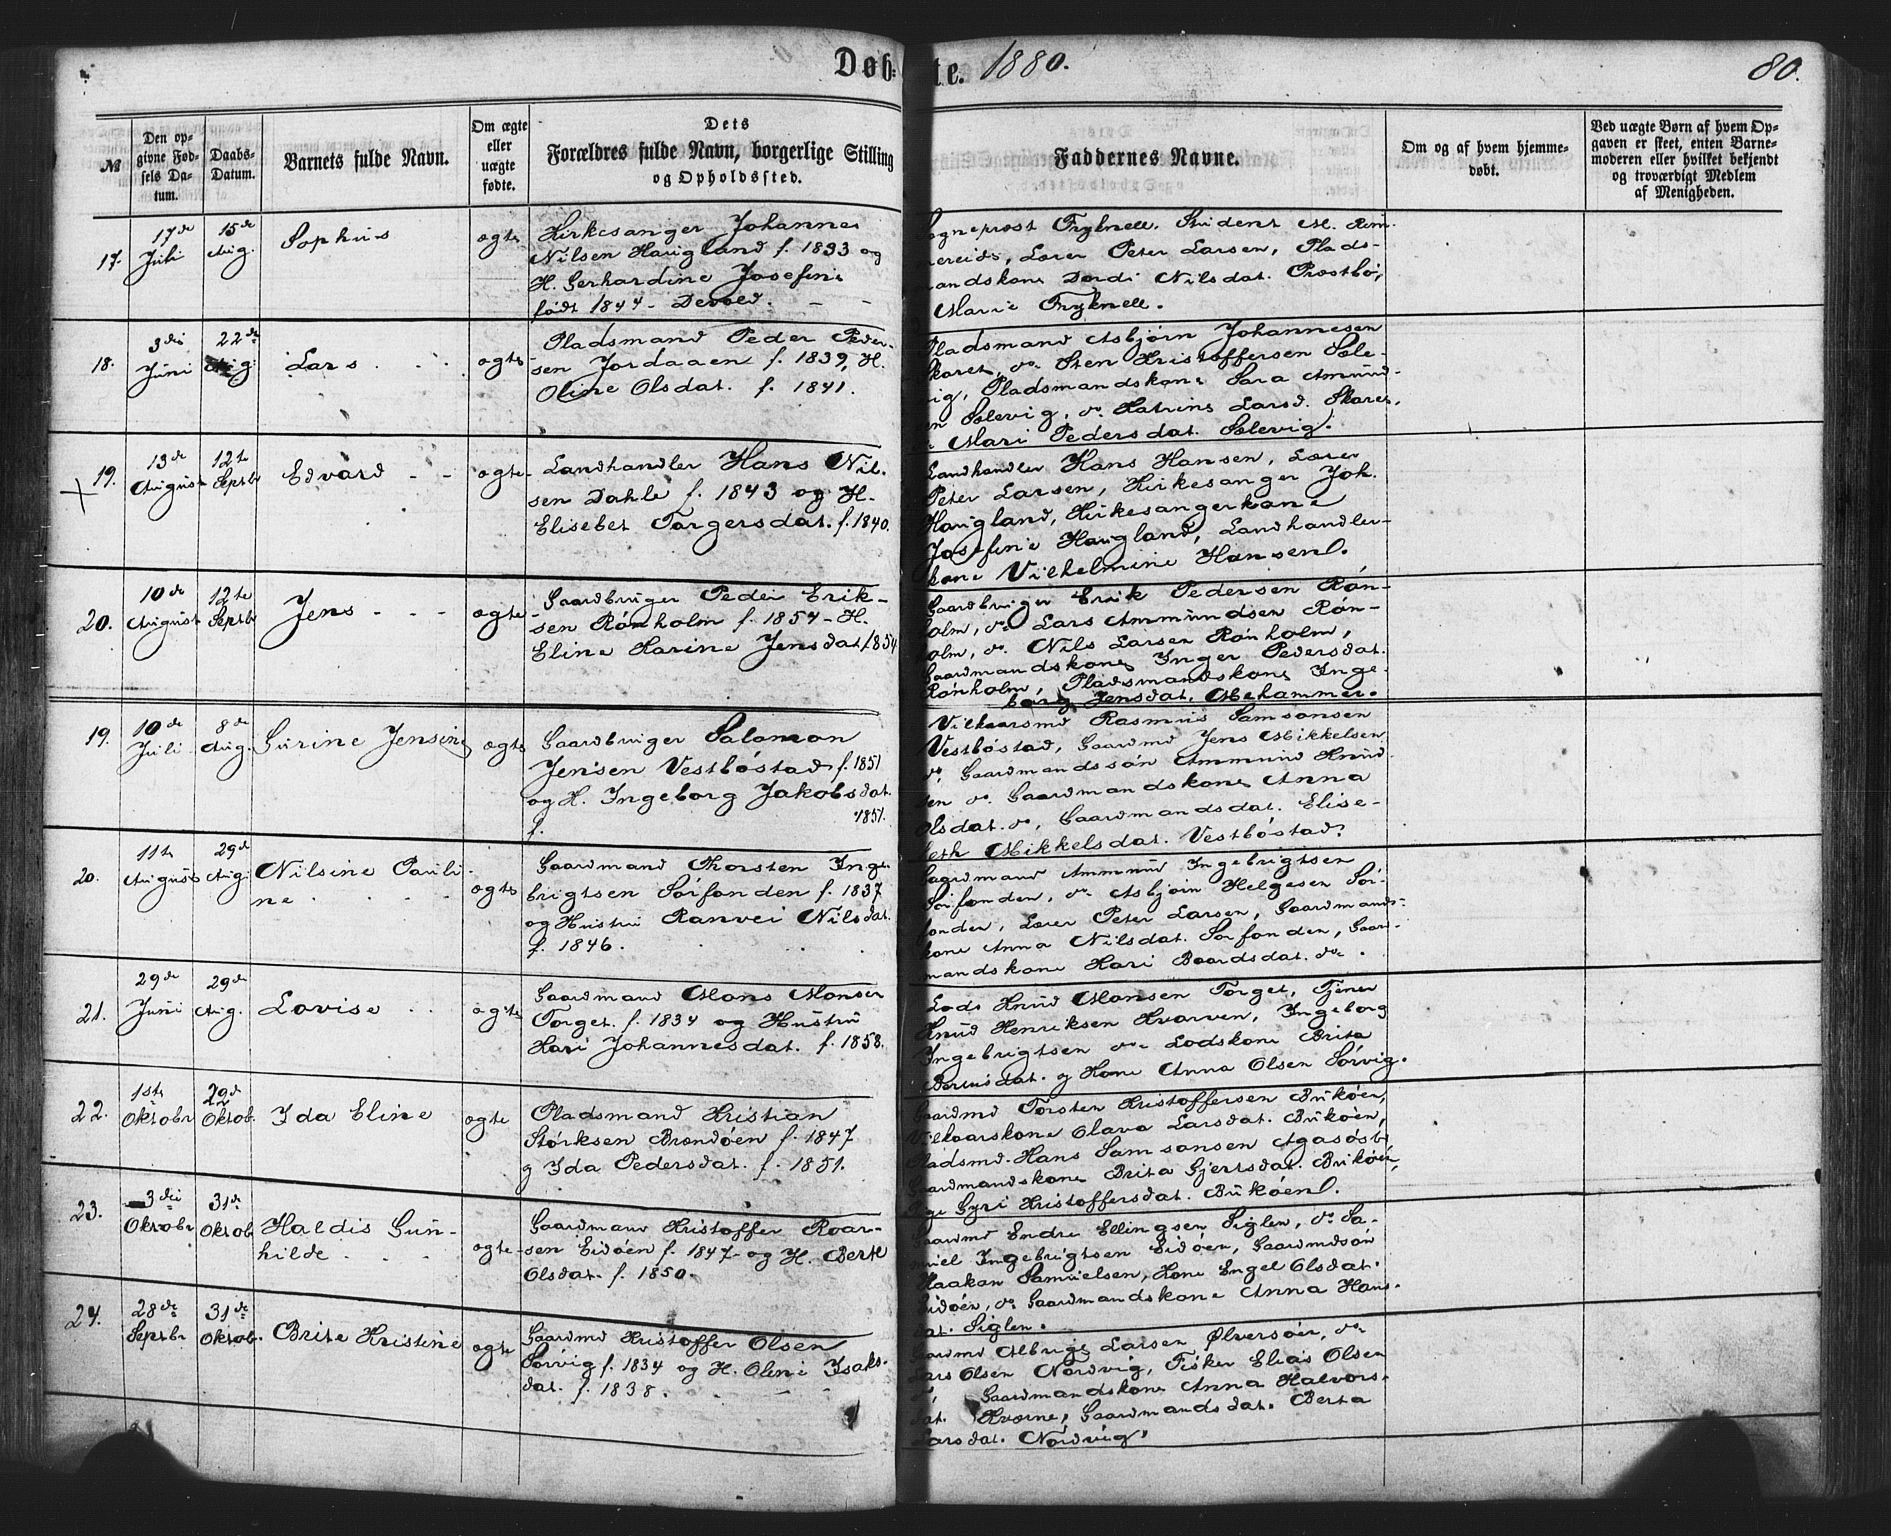 Døbte. 1880. 80.
№
Den opgivne Fødsels Datum.
Daabs-Datum.
Barnets fulde Navn.
Om ægte eller uægte fødte.
Dets Forældres fulde Navn, borgerlige Stilling og Opholdssted.
Faddernes Navne.
Om og af hvem hjemmedøbt.
Ved uægte Børn af hvem Opgaven er skeet, enten Barnemoderen eller hvilket bekjendt og troværdigt Medlem af Menigheden.
17. 17de Juli 15de Aug. Sophus ægte
Kirkesanger Johannes
Nilsen Haugland f. 1833 og
H. Gerhardine Josefine
født 1844 - Devold. - -
Sogneprost Fryknell. Student M. Rem-
mereid, Lærer Peter Larsen, Plads-
mandskone Dordi Nilsdat. Prestbø,
Marie Fryknell.
18. 3die Juni 22de Aug. Lars ægte
Pladsmand Peder Peder-
sen Jordaaen f. 1839, H.
Oline Olsdat. f. 1841.
Pladsmand Asbjørn Johannesen
Skaret, do Sten Kristoffersen Sæle-
vig, Pladsmandskone Sara Amund-
sen Sælevig, do. Katrine Larsd. Skaret,
Mari Pedersdat. Sælevig.
19. 13de August 12te Septbr Edvard ægte
Landhandler Hans Nil-
sen Dahle f. 1843 og H.
Elisebet Torgersdat. f. 1840.
Landhandler Hans Hansen, Lærer
Peter Larsen, Kirkesanger Joh.
Haugland, Kirkesangerkone
Josefine Haugland, Landhandler-
kone Vilhelmine Hansen.
20. 10de August 12te Septbr Jens ægte
Gaardbruger Peder Erik-
sen Rønholm f. 1854 - H.
Eline Karine Jensdat f. 1854
Gaardbruger Erik Pedersen Røn-
holm, do Lars Ammundsen Røn-
holm, do. Nils Larsen Rønholm,
Gaardmandskone Inger Pedersdat.
Rønholm, Pladsmandskone Inge-
borg Jensdat. Mehammer.
19. 10de Juli 8de Aug. Surine Jensine ægte
Gaardbruger Salamon
Jensen Vestbøstad f. 1851
og H. Ingeborg Jakobsdat.
f. 1851.
Vilkaarsmd Rasmus Samsonsen
Vestbøstad, Gaardmd Jens Mikkelsen
do. Gaardmandssøn Ammund Knud-
sen do. Gaardmandskone Anna
Olsdat. do, Gaardmandsdat. Elise-
beth Mikkelsdat. Vestbøstad.
20. 11te August 29de Aug. Nilsine Pauli-
ne ægte
Gaardmand Thorsten Inge-
brigtsen Sørfonden f. 1837
og Hustru Ranvei Nilsdat.
f. 1846.
Gaardmand Ammund Ingebrigtsen
Sørfonden, do Asbjørn Helgesen Sør-
fonden, Lærer Peter Larsen, Gaardmands-
kone Anna Nilsdat. Sørfonden, Gaard-
mandskone Kari Baardsdat. do.
21. 29de Juni 29de Aug. Lovise ægte
Gaardmand Mons Monsen
Torget. f. 1834 og Hustru
Kari Johannesdat. f. 1858.
Lods Knud Monsen Torget, Tjener
Knud Henriksen Kvarven, Ingeborg
Ingebrigtsen do Lodskone Brita
Berntsdat. og Kone Anna Olsen Sørvig.
22. 1ste Oktobr 29de Oktob. Ida Eline ægte
Pladsmand Kristian
Størksen Brendøen f. 1847
g Ida Pedersdat. f. 1851.
Gaardmd Torsten Kristoffersen Bukøen,
Vilkaarskone Olava Larsdat. Bukøen,
Pladsmd. Hans Samsonsen Agasøsbø
Gaardmandskone Brita Gjertsdat. Bukøen,
Pige Gyri Kristoffersdat. Bukøen.
23. 3die Oktobr 31de Oktob. Haldis Gun-
hilde ægte
Gaardmand Kristoffer Roar-
sen Eidøen f. 1847 og H. Berte
Olsdat. f. 1850.
Gaardmd Endre Ellingsen Siglen, do Sa-
muel Ingebrigtsen Eidøen, Gaardmdsøn
Haakon Samuelsen, Kone Engel Olsdat.
Eidøen, do Gaardmandskone Anna Hans-
dat. Siglen.
24. 28de Septbr 31de Oktob. Brite Kristine ægte
Gaardmd Kristoffer Olsen
Sørvig f. 1834 og H. Oline Isaks-
dat. f. 1838.
Gaardmd Albrigt Larsen Ølversøen, do
Lars Olsen Nordvig, Fisker Elias Olsen
do, Gaardmandskone Anna Halvors-
dat. Kværne, Gaardmandsdat. Berta
Larsdat. Nordvig.